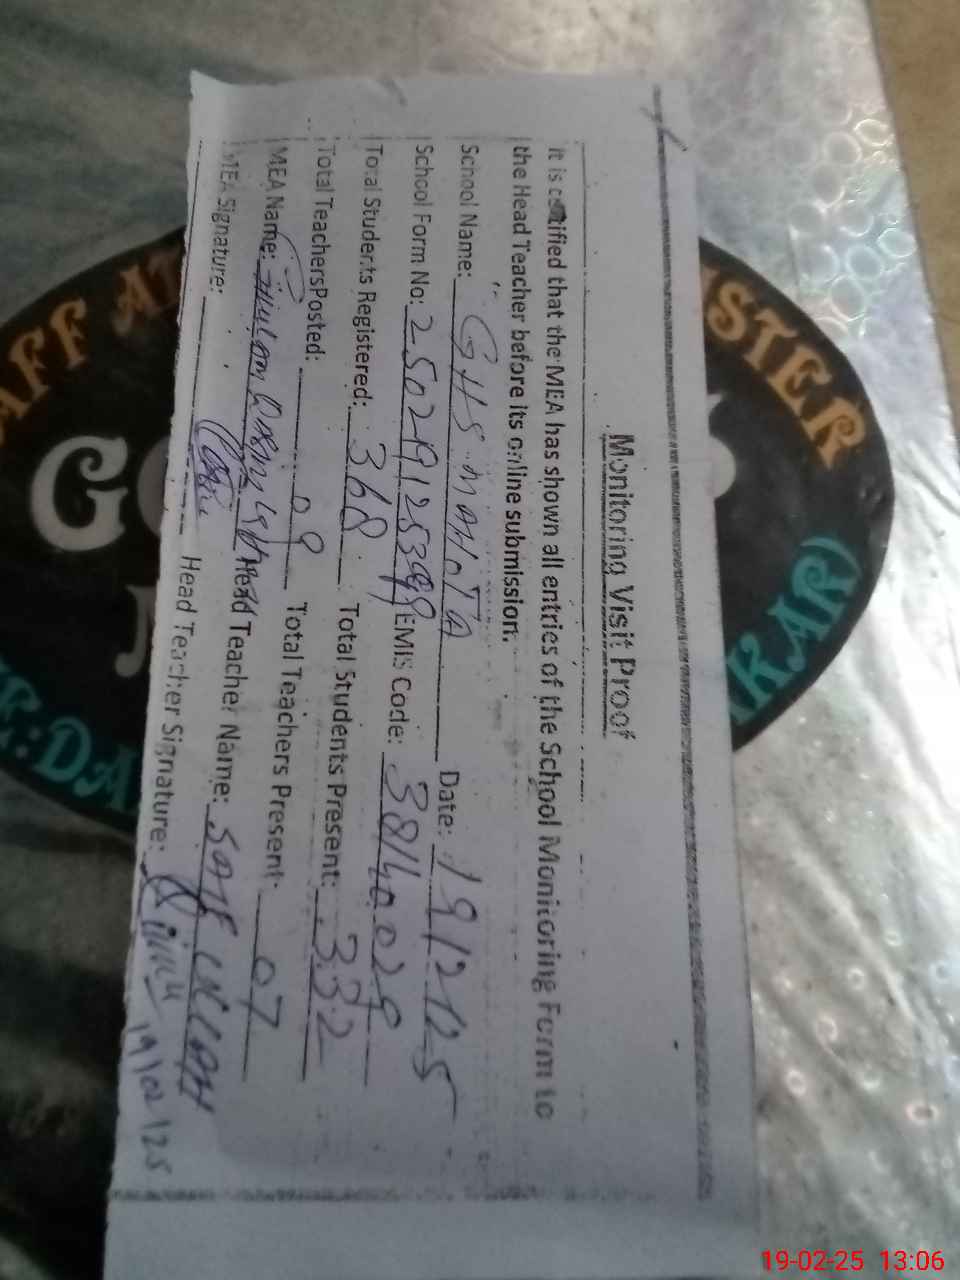 Monitoring Visit Proof
It is certified that the MEA has shown all entries of the School Monitoring Form to
the Head Teacher before its online submission.
School Name: GHS MAHOTA Date: 19/2/25
School Form No: EMIS Code: 38140029
Total Students Registered: 368 Total Students Present: 332
Total TeachersPosted: 09 Total Teachers Present: 07
MEA Name: Head Teacher Name: SAIF ULLAH
MEA Signature: Head Teacher Signature: 19/02/25
STER
AFF AT
G
KAR)
DA
19-02-25 13:06